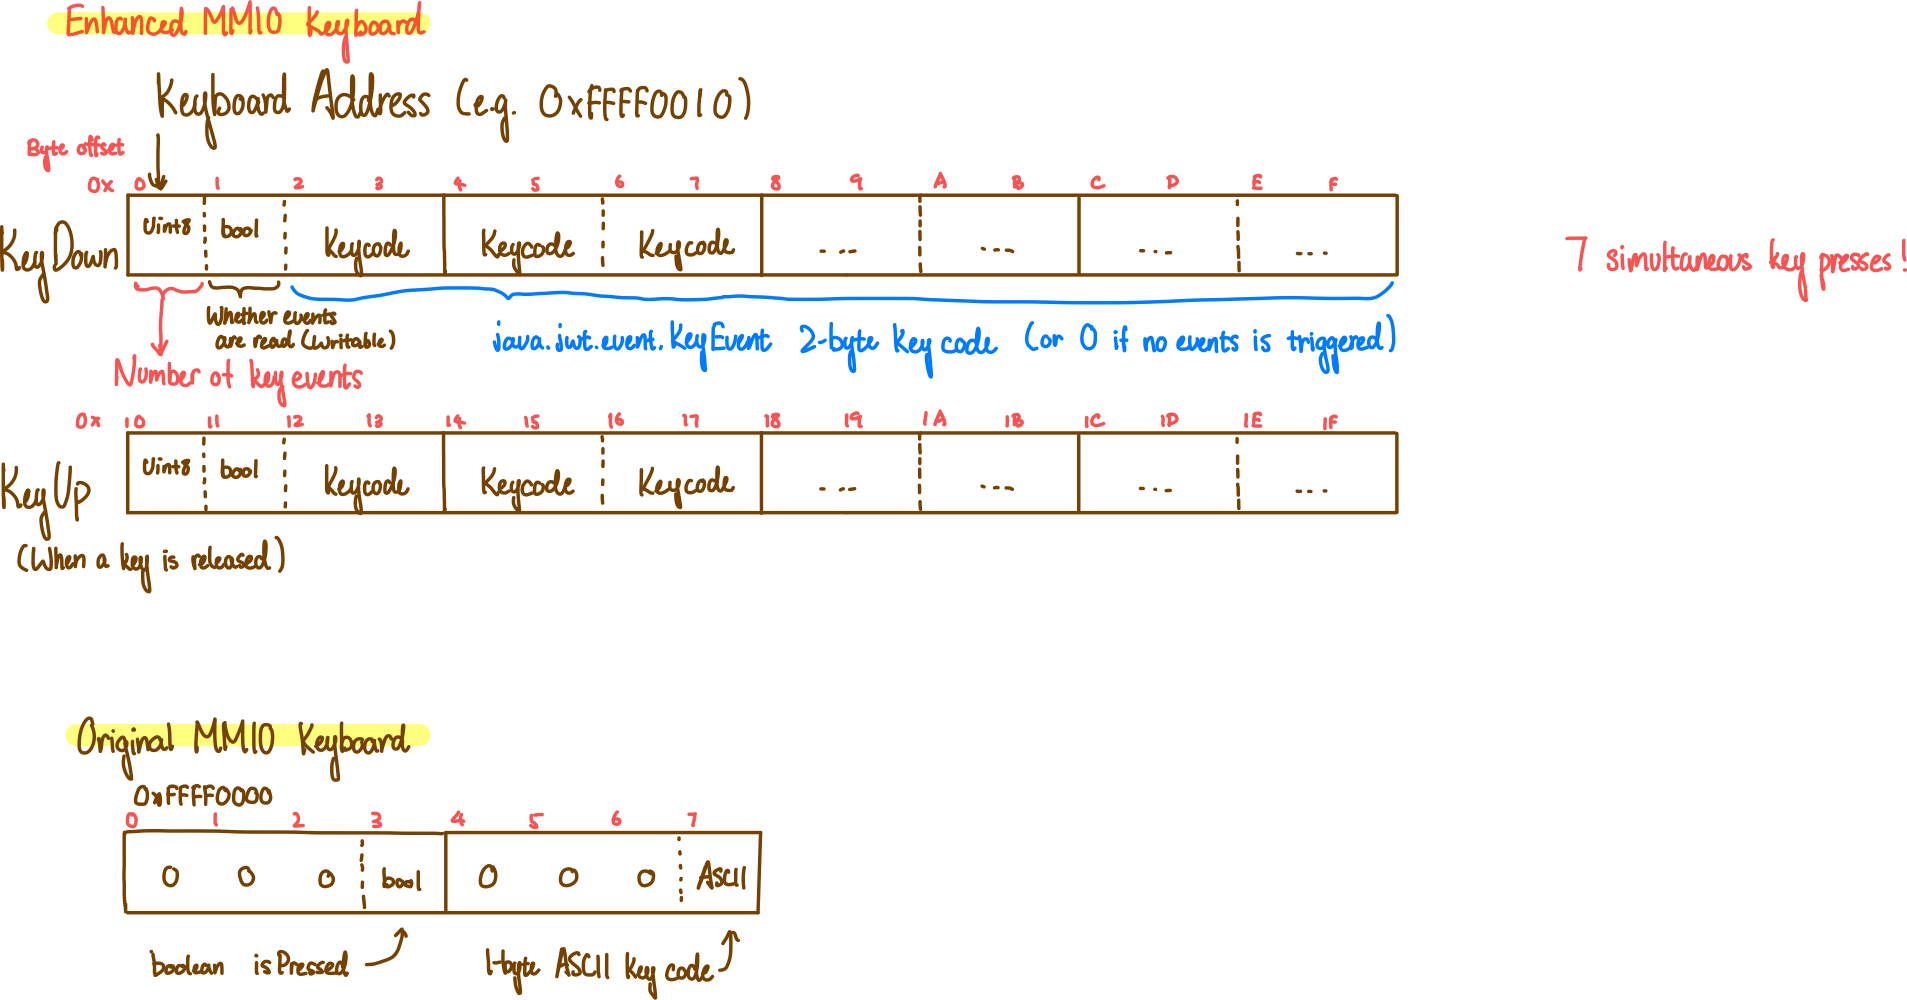 Enhanced MMIO Keyboard
Keyboard Address (e.g. 0xFFFF0010)
Byte offset
0x 0 1 2 3 4 5 6 7 8 9 A B C D E F
KeyDown Uint8 bool Keycode Keycode Keycode ... ... ... ...
7 simultaneous key presses!
Whether events
are read (Writable)
java.jwt.event.KeyEvent 2-byte Key code (or 0 if no events is triggered)
Number of key events
0x 10 11 12 13 14 15 16 17 18 19 1A 1B 1C 1D 1E 1F
KeyUp Uint8 bool Keycode Keycode Keycode ... ... ... ...
(When a key is released)
Original MMIO Keyboard
0xFFFF0000
0 1 2 3 4 5 6 7
0 0 0 bool 0 0 0 ASCII
boolean isPressed
1-byte ASCII Key code